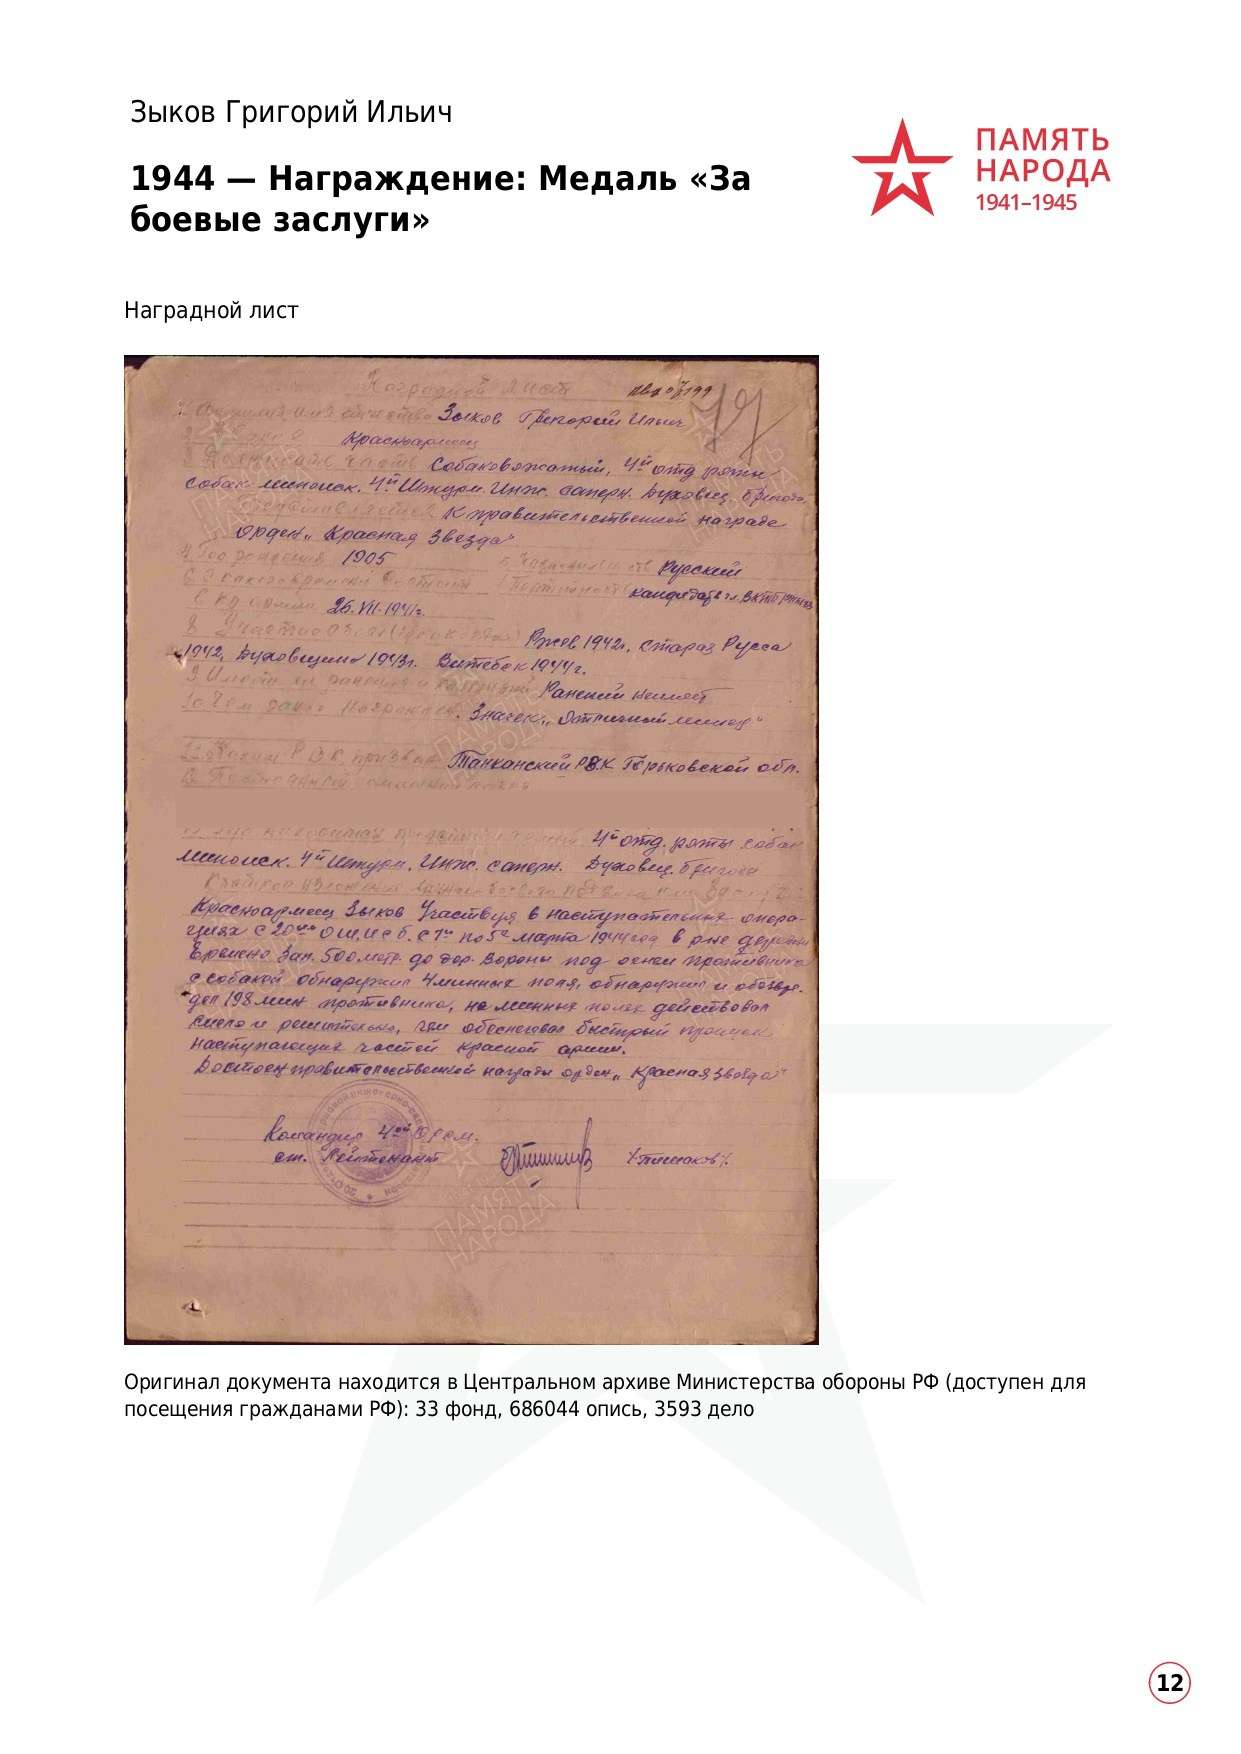 Зыков Григорий Ильич
1944 — Награждение: Медаль «За
боевые заслуги»
ПАМЯТЬ
НАРОДА
1941–1945
Наградной лист
Наградной лист
Фамилия, имя, отчество Зыков Григорий Ильич
Красноармеец
часть Собаковожатый, 4й отд роты
собак миноиск. 4й Штурм. Инж. саперн. Духовщ. бригада
К правительственной награде
орден „Красная Звезда"
4 Год рождения 1905 Русский
6 С какого времени состоит Партийность кандидат
в кр армии 26.VII-1941г.
8 Участие Ржев 1942г, Стараз Русса
1942, Духовщино 1943г. Витебск 1944г.
9 Имеет ли ранения и контузии Ранений неимеет
10 Чем ранее награжден. Значек „Отличный минер"
11 Каким РВК призван РВК Горьковской обл.
4й отд. роты собак
миноиск. 4й Штурм. Инж. саперн. Духовщ. бригада
Краткое изложение
Красноармеец Зыков Участвуя в наступательных опера-
циях с 20ой О Ш.И С б. с 1го по 5е марта 1944 год в р-не деревни
Еремено Зап. 500 метр. до дер. Вороны под огнем противника
с собакой обнаружил 4 минных поля, обнаружил и обезвре-
дел 198 мин противника, на минных полях действовал
смело и решительно, чем обеспечевал быстрый
наступающих частей красной армии.
Достоен правительственной награды орден „Красная Звезда"
Командир 4ой
ст. Лейтенант
ПАМЯТЬ
НАРОДА
Оригинал документа находится в Центральном архиве Министерства обороны РФ (доступен для
посещения гражданами РФ): 33 фонд, 686044 опись, 3593 дело
12